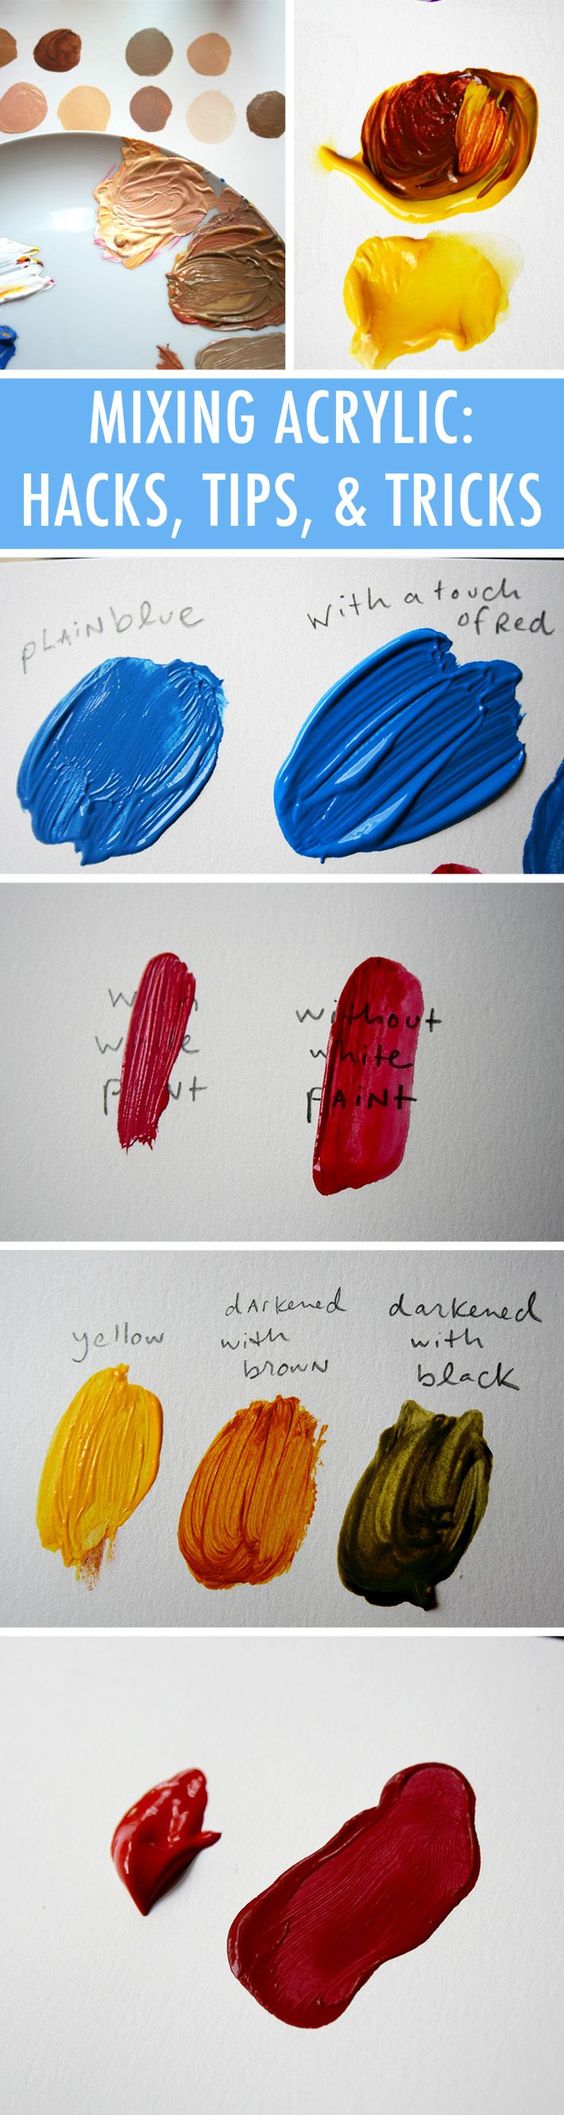 MIXING ACRYLIC:
HACKS, TIPS, & TRICKS
plain blue
with a touch
of Red
with
white
paint
without
white
paint
yellow
darkened
with
brown
darkened
with
black